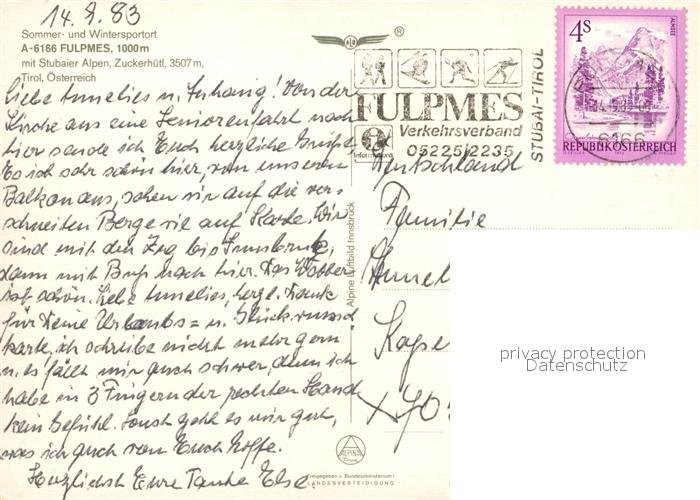 14.9.83
Sommer- und Wintersportort
A-6166 FULPMES, 1000m
mit Stubaier Alpen, Zuckerhütl, 3507m,
Tirol, Österreich
Liebe Annelies u. Anhang! Von der
Kirche aus eine Seniorenfahrt nach
hier sende ich Euch herzliche Grüße
Es ist sehr schön hier, von unseren
Balkon aus, sehen wir auf die ver-
schneiten Berge wie auf Karte. Wir
sind mit den Zug bis Innsbruck,
dann mit Bus nach hier. Das Wetter
ist schön. Liebe Annelies, herzl. Dank
für Deine Urlaubs= u. Glückwunsch
karte, ich schreibe nicht mehr gern
u. es fällt mir auch schwer, denn ich
habe in 3 Fingern der rechten Hand
kein Gefühl. Sonst geht es mir gut,
was ich auch von Euch hoffe.
Herzlichst Eure Tante Else.
Alpine Luftbild Innsbruck
ALPINA
Freigegeben v. Bundesministerium f.
LANDESVERTEIDIGUNG
®
FULPMES
Verkehrsverband
Information
05225/2235
STUBAI-TIROL
4S
ALMSEE
6166
REPUBLIK ÖSTERREICH
Deutschland
Familie
Annel
Kape
privacy protection
Datenschutz